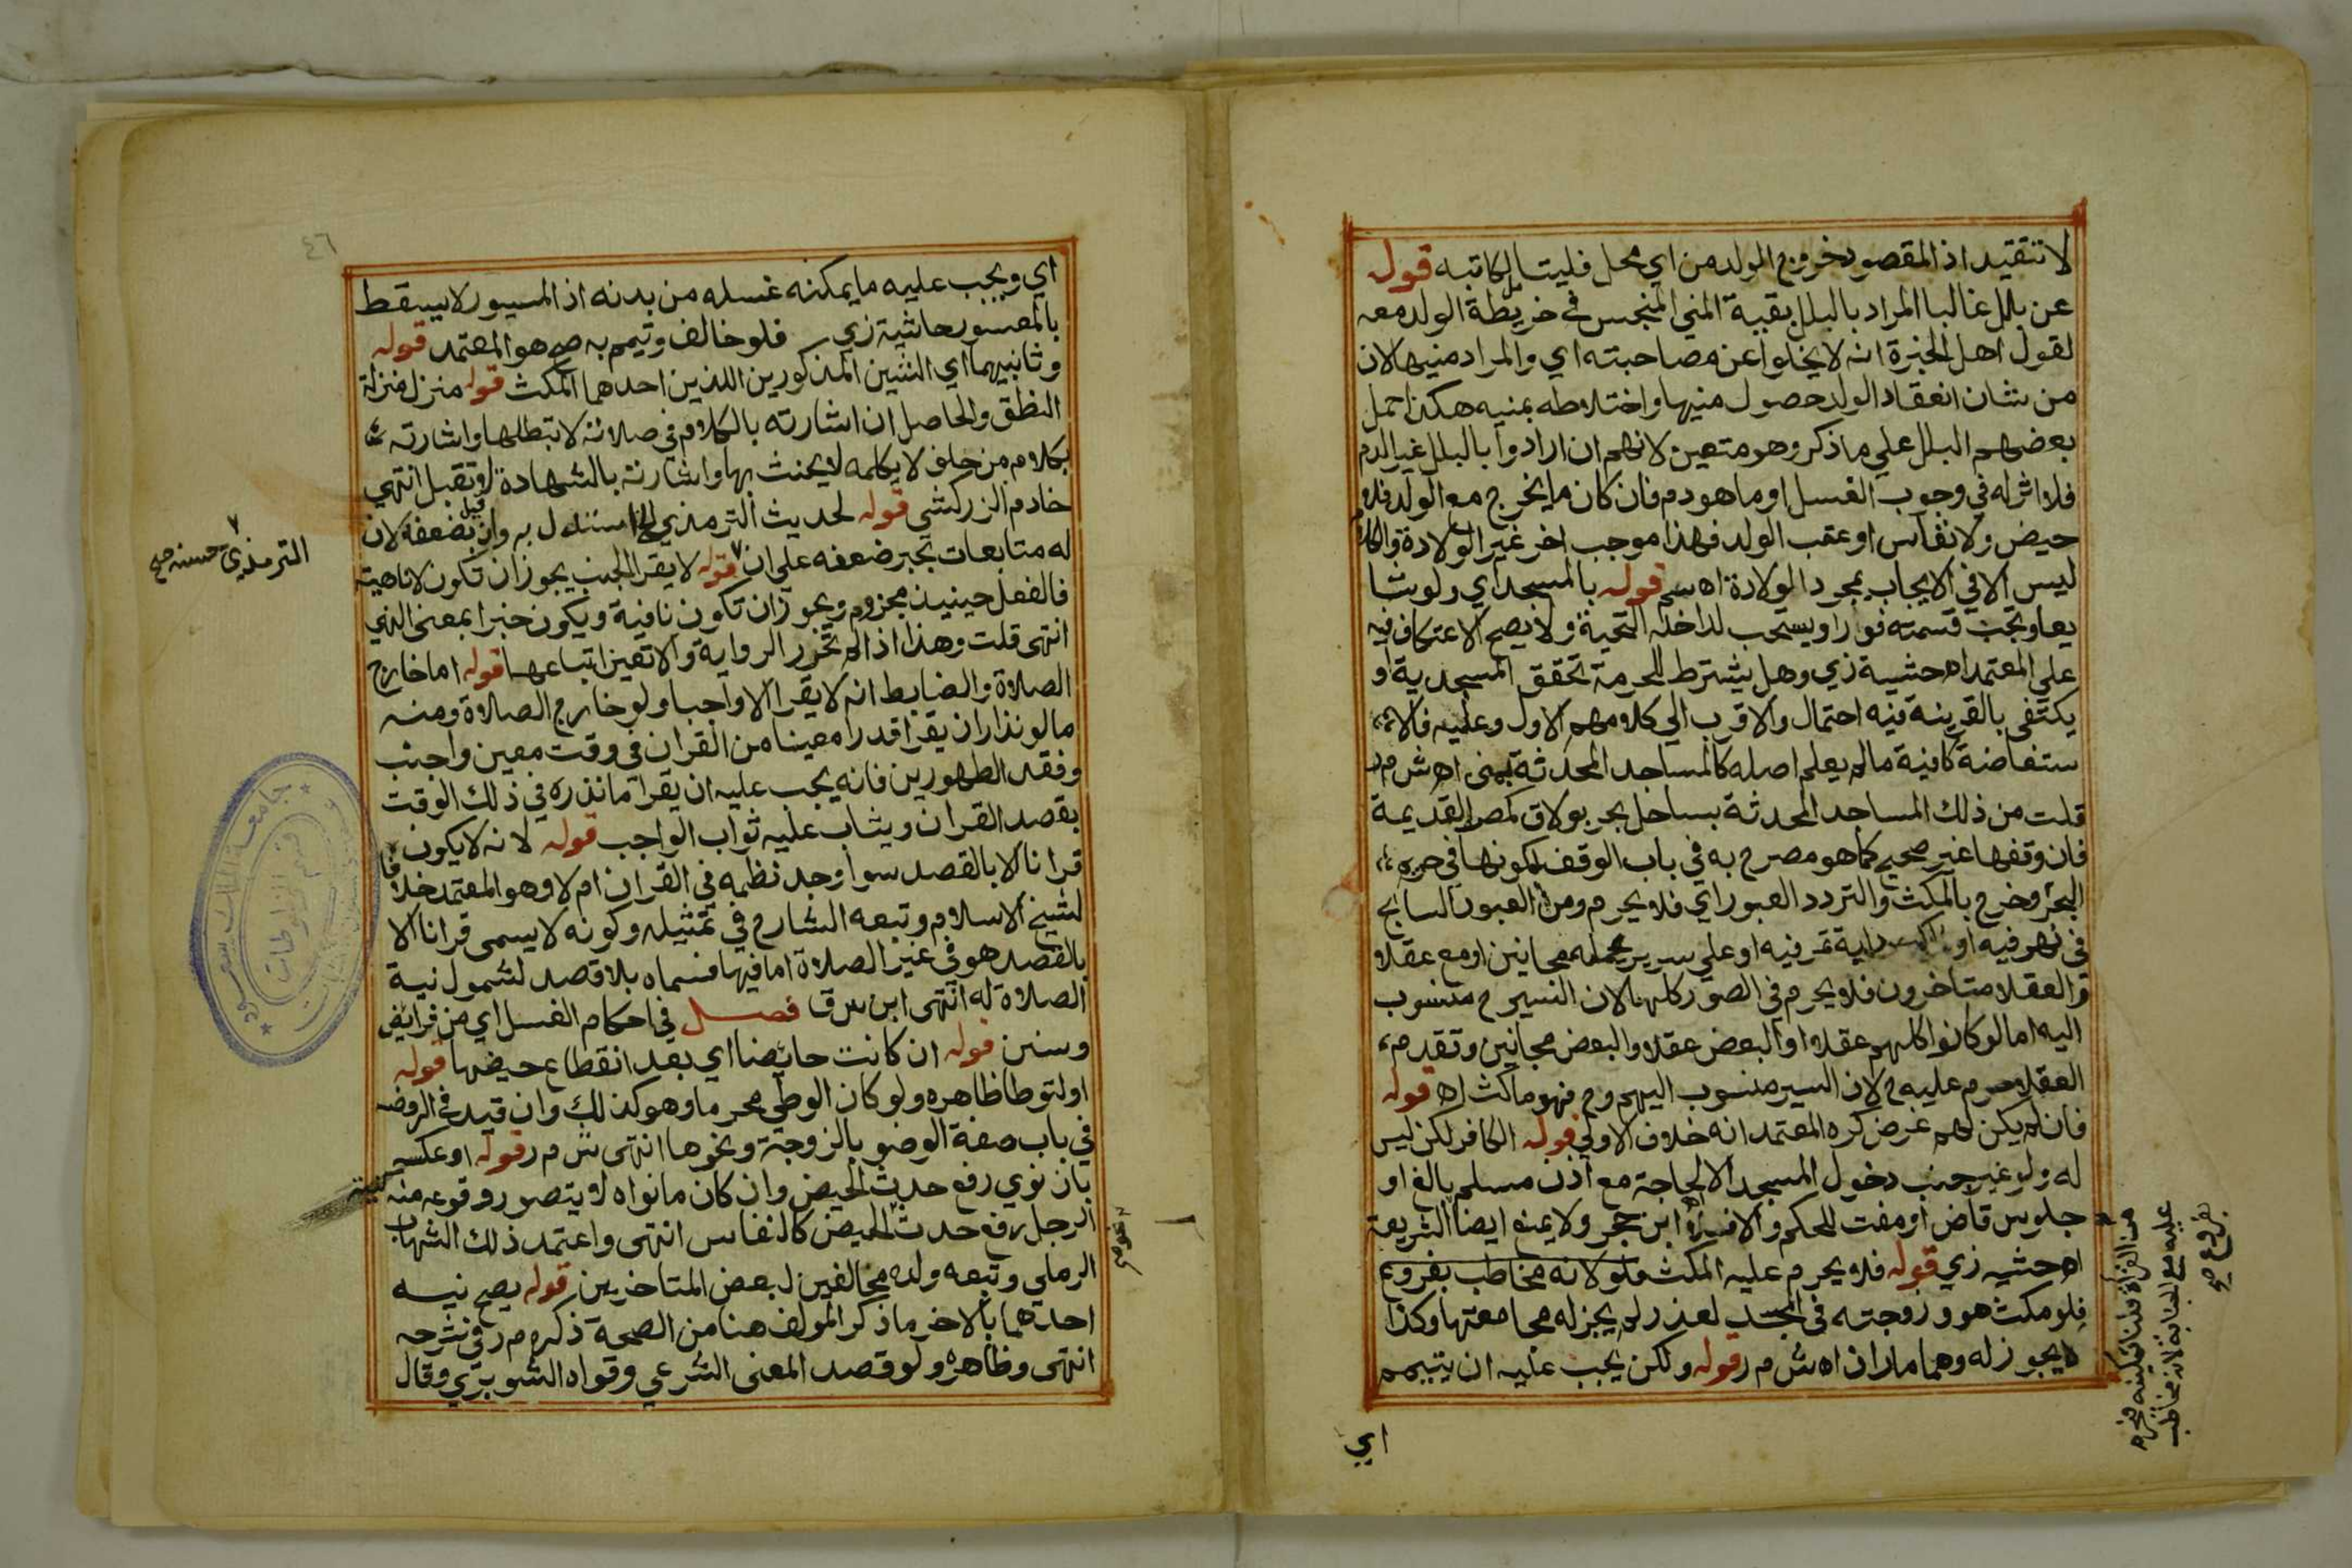 لا تتقيد اذ المقصود خروج المولد من اي محل فليتامل كاتبه قوله
عن بلل غالبا المراد بالبلل بقية المني المنحبس في خريطة الولد معه
لقول اهل الخبرة انه لا يخلوا عن مصاحبته اي والمراد منيها لان
من شان انعقاد الولد حصول منيها واختلاطه بمنيه هكذا حمل
بعضهم البلل علي ما ذكر وهو متعين لانهم ان ارادوا بالبلل غير الدم
فلا اثر له في وجوب الغسل او ما هو دم فان كان ما يخرج مع الولد فلا
حيض ولا نفاس او عقب الولد فهذا موجب اخر غير الولادة والكلام
ليس الا في الايجاب بمجرد الولادة اه قوله بالمسجد اي ولو شا
يعا وتجب قسمته فورا ويستحب لداخله التحية ولا يصح الاعتكاف فيه
علي المعتمد اه حشية زي وهل يشترط للحرمة تحقق المسجدية او
يكتفي بالقرينة فيه احتمال والاقرب الي كلامهم الاول وعليه فالا
ستفاضة كافية مالم يعلم اصله كالمساجد المحدثة بمني اه ش م ر
قلت من ذلك المساجد المحدثة بساحل بحر بولاق لمصر القديمة
فان وقفها غير صحيح كما هو مصرح به في باب الوقف لكونها في حريم
البحر وخرج بالمكث والتردد العبور اي فلا يحرم ومن العبور السابح
في نهر فيه او دابة تمر فيه او علي سرير يحمله مجانين او مع عقلا
والعقلا متاخرون فلا يحرم في الصور كلها لان السير ح منسوب
اليه اما لو كانوا كلهم عقلا او البعض عقلا والبعض مجانين وتقدم
العقلا حرم عليه ح لان السير منسوب اليهم وح فهو ماكث اه قوله
فان لم يكن لهم غرض كره المعتمد انه خلاف الاولي قوله الكافر لكن ليس
له ولو غير جنب دخول المسجد الا لحاجة مع اذن مسلم بالغ او
جلوس قاض او مفت للحكم والافتا اه ابن حجر ولا يمنع ايضا الشريعة
اه حشيه زي قوله فلا يحرم عليه المكث ولو لانه مخاطب بفروع
فلو مكث هو وزوجته في المسجد لعذر لم يجز له مجامعتها وكذا
لا يجوز له وهما ماران اه ش م ر قوله ولكن يجب عليه ان يتيمم
اي
عليه مع الجنابة لانه مخاطب
بفروع صح
٤٦
اي ويجب عليه ما يمكنه غسله من بدنه اذ الميسور لا يسقط
بالمعسور حاشية زي فلو خالف وتيمم به صح هو المعتمد قوله
وثانيهما اي الشيئين المذكورين اللذين احدهما المكث قوله منزل منزلة
النطق والحاصل ان اشارته بالكلام في صلاته لا تبطلها واشارته
بكلام من حلف لا يكلمه لا يحنث بها واشارته بالشهادة لا تقبل انتهي
خادم الزركشي قوله لحديث الترمذي الخ استدل به وان قيل بضعفه لان
له متابعات تجبر ضعفه علي ان قوله لا يقر الجنب يجوز ان تكون لا ناهية
فالفعل حينيذ مجزوم ويجوز ان تكون نافية ويكون خبرا بمعني النهي
انتهي قلت وهذا اذا لم تحرر الرواية والا تعين اتباعها قوله اما خارج
الصلاة والضابط انه لا يقرا الا واجبا ولو خارج الصلاة ومنه
ما لو نذر ان يقرا قدرا معينا من القران في وقت معين واجنب
وفقد الطهورين فانه يجب عليه ان يقرا ما نذره في ذلك الوقت
بقصد القران ويثاب عليه ثواب الواجب قوله لانه لا يكون
قرانا الا بالقصد سوا وجد نظمه في القران ام لا وهو المعتمد خلافا
لشيخ الاسلام وتبعه الشارح في تمثيله وكونه لا يسمي قرانا الا
بالقصد هو في غير الصلاة اما فيها فسماه بلا قصد لشمول نية
الصلاة له انتهي ابن س ق فصل في احكام الغسل اي من فرايض
وسنن قوله ان كانت حائضا اي بعد انقطاع حيضها قوله
او لتوطا ظاهره ولو كان الوطي محرما وهو كذلك وان قيد في الروضه
في باب صفة الوضو بالزوجة ونحوها انتهي ش م ر قوله او عكسه
بان نوي رفع حدث الحيض وان كان ما نواه لا يتصور وقوعه منه كنية
الرجل رفع حدث الحيض كالنفاس انتهي واعتمد ذلك الشهاب
الرملي وتبعه ولده مخالفين لبعض المتاخرين قوله يصح نيه
احدهما بالاخر ما ذكر المولف هنا من الصحة ذكره م ر في شرحه
انتهي وظاهره ولو قصد المعني الشرعي وقواه الشوبري وقال
الترمذي حسنه صح
جامعة الملك سعود
قسم المخطوطات